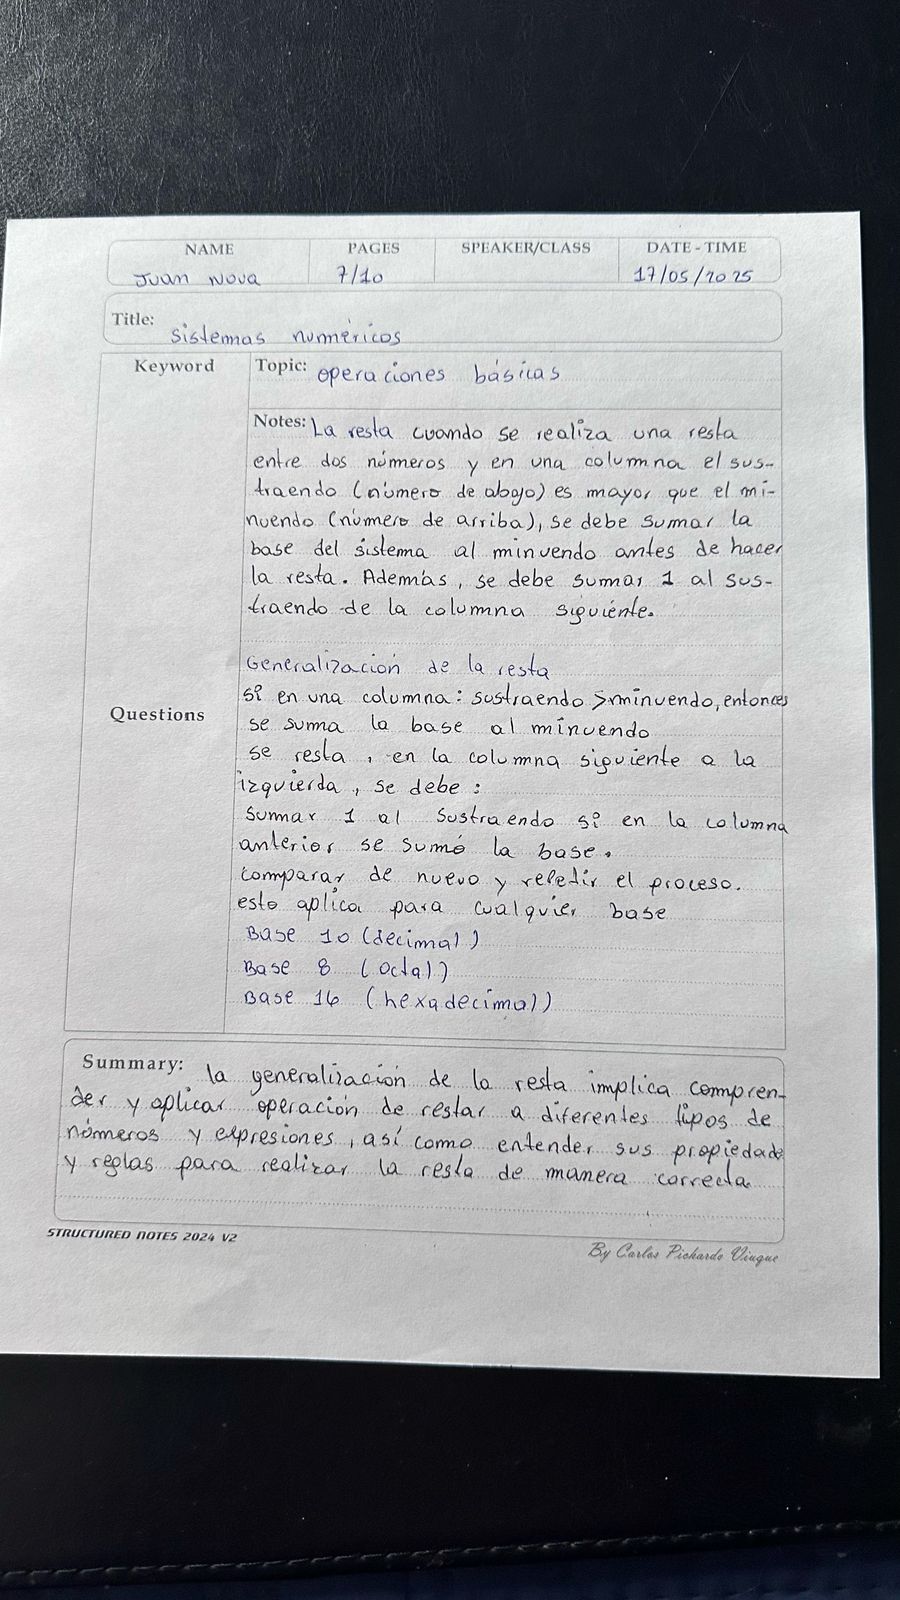 NAME PAGES SPEAKER/CLASS DATE - TIME
Juan Nova 7/10 17/05/2025
Title: sistemas numéricos
Keyword
Topic: operaciones básicas
Notes: La resta cuando se realiza una resta
entre dos números y en una columna el sus-
traendo (número de abajo) es mayor que el mi-
nuendo (número de arriba), se debe sumar la
base del sistema al minuendo antes de hacer
la resta. Además, se debe sumar 1 al sus-
traendo de la columna siguiente.
Generalización de la resta
si en una columna: sustraendo > minuendo, entonces
Questions
se suma la base al minuendo
se resta, en la columna siguiente a la
izquierda, se debe:
sumar 1 al sustraendo si en la columna
anterior se sumó la base.
comparar de nuevo y repetir el proceso.
esto aplica para cualquier base
Base 10 (decimal)
Base 8 (octal)
Base 16 (hexadecimal)
Summary: la generalización de la resta implica compren-
der y aplicar operación de restar a diferentes tipos de
números y expresiones, así como entender sus propiedade
y reglas para realizar la resta de manera correcta
STRUCTURED NOTES 2024 V2
By Carlos Pichardo Viuque